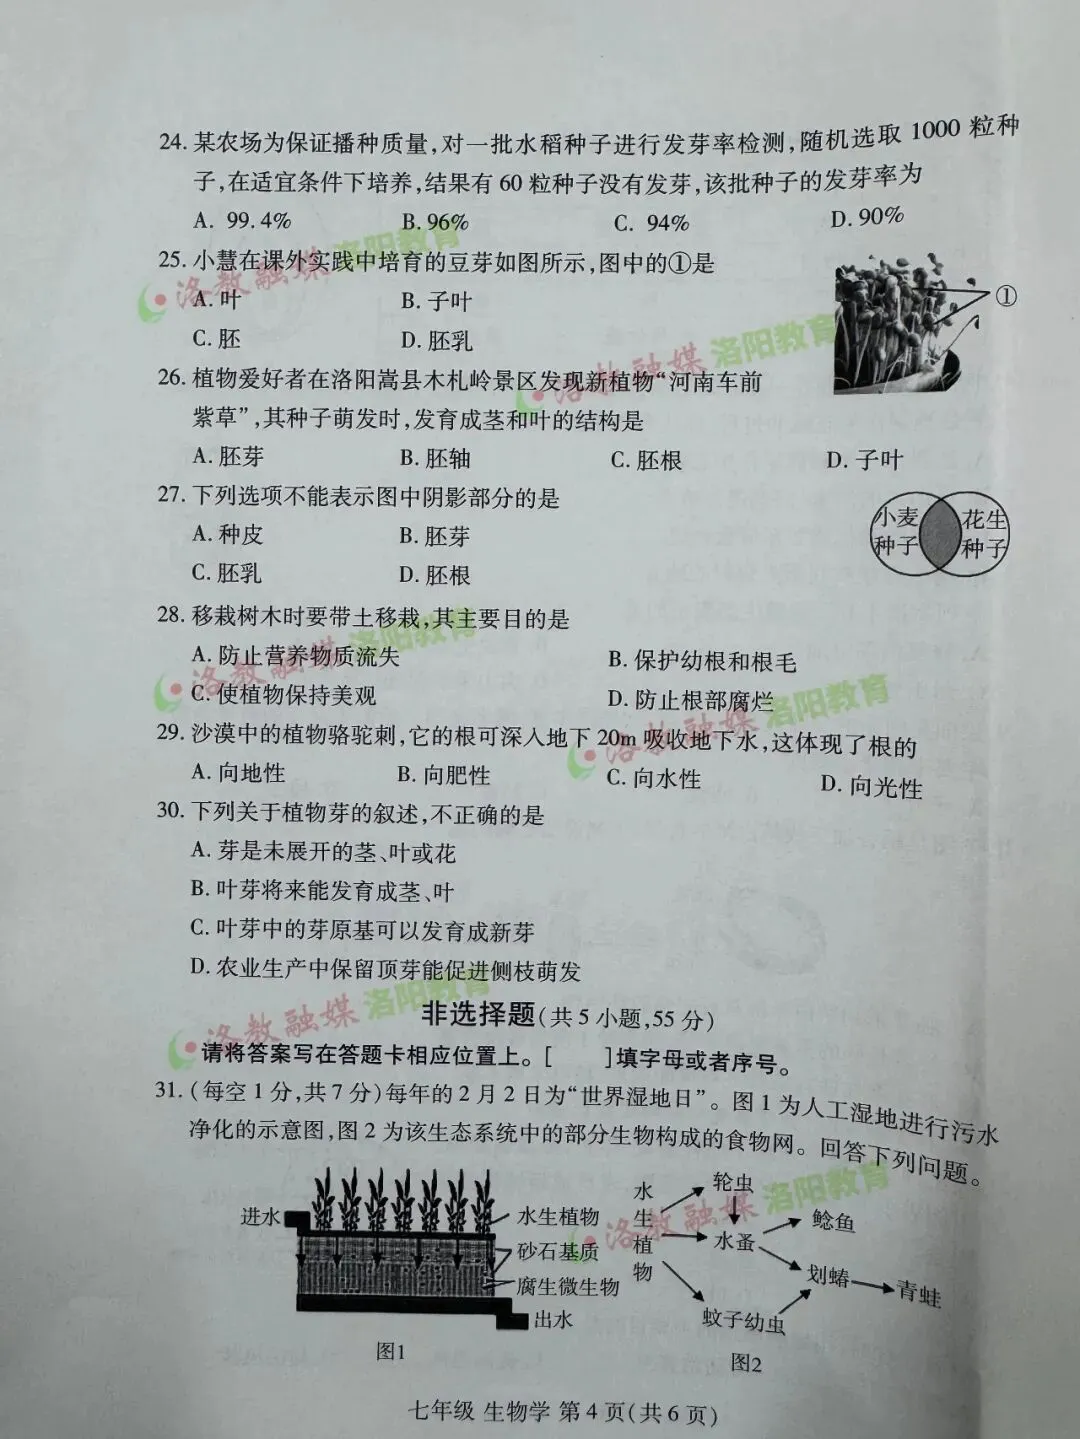 24. 某农场为保证播种质量,对一批水稻种子进行发芽率检测,随机选取 1000 粒种
子,在适宜条件下培养,结果有 60 粒种子没有发芽,该批种子的发芽率为
A. 99.4% B. 96% C. 94% D. 90%
25. 小慧在课外实践中培育的豆芽如图所示,图中的①是
A. 叶 B. 子叶
C. 胚 D. 胚乳
①
26. 植物爱好者在洛阳嵩县木札岭景区发现新植物“河南车前
紫草”,其种子萌发时,发育成茎和叶的结构是
A. 胚芽 B. 胚轴 C. 胚根 D. 子叶
27. 下列选项不能表示图中阴影部分的是
A. 种皮 B. 胚芽
C. 胚乳 D. 胚根
小麦种子 花生种子
28. 移栽树木时要带土移栽,其主要目的是
A. 防止营养物质流失 B. 保护幼根和根毛
C. 使植物保持美观 D. 防止根部腐烂
29. 沙漠中的植物骆驼刺,它的根可深入地下 20m 吸收地下水,这体现了根的
A. 向地性 B. 向肥性 C. 向水性 D. 向光性
30. 下列关于植物芽的叙述,不正确的是
A. 芽是未展开的茎、叶或花
B. 叶芽将来能发育成茎、叶
C. 叶芽中的芽原基可以发育成新芽
D. 农业生产中保留顶芽能促进侧枝萌发
非选择题(共 5 小题,55 分)
请将答案写在答题卡相应位置上。[ ]填字母或者序号。
31. (每空 1 分,共 7 分)每年的 2 月 2 日为“世界湿地日”。图 1 为人工湿地进行污水
净化的示意图,图 2 为该生态系统中的部分生物构成的食物网。回答下列问题。
进水
水生植物
砂石基质
腐生微生物
出水
图1
水生植物
轮虫
水蚤
鲶鱼
划蝽
青蛙
蚊子幼虫
图2
七年级 生物学 第 4 页(共 6 页)
洛教融媒 洛阳教育
洛教融媒 洛阳教育
洛教融媒 洛阳教育
洛教融媒 洛阳教育
洛教融媒 洛阳教育
洛教融媒 洛阳教育